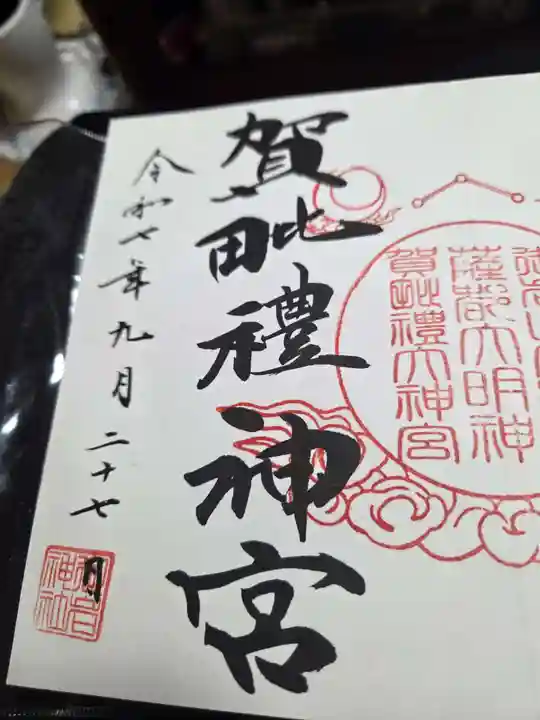 薩都大明神
賀毗禮大神宮
賀毗禮神宮
令和七年九月二十七日
神社